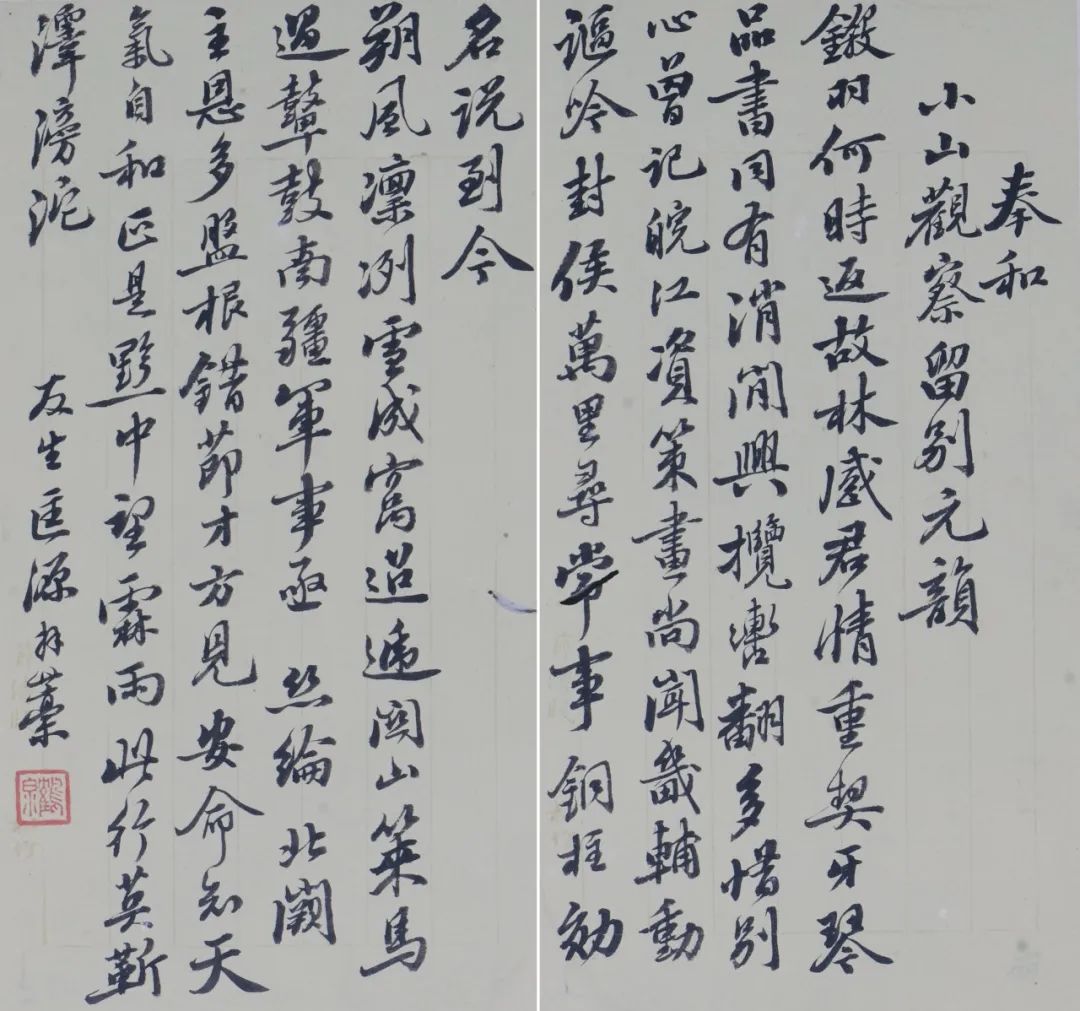 奉和
小山觀察留别元韻
鎩羽何時返故林感君情重契牙琴
品書同有消閒興攬轡翻多惜别
心曾記皖江資策畫尚聞畿輔動
謳吟封侯萬里尋常事銅柱勛
名说到今
朔風凛冽雪成窩迢遞關山策馬
過鼙鼓南疆軍事亟 丝綸北闕
主恩多盤根錯節才方見安命知天
氣自和正是黔中望霖雨此行莫靳
澤滂沱
友生匡源拜藁
鶴泉